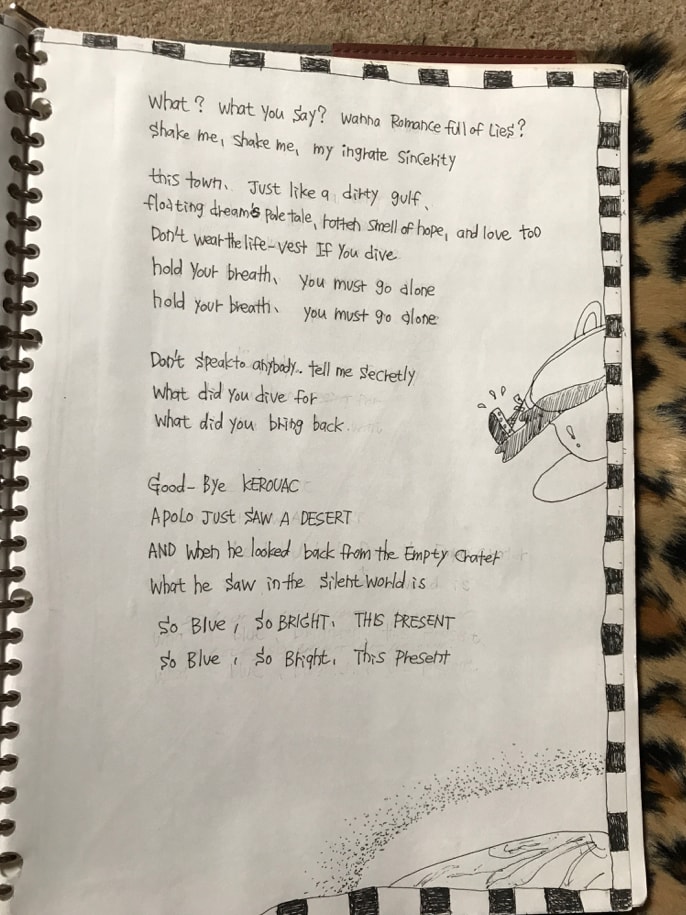 What? What you say? wanna Romance full of Lies?
Shake me, Shake me, my ingrate sincerity
this town、 Just like a dirty gulf、
floating dream's Pale tale, rotten smell of hope, and love too
Don't wear the life-vest If You dive
hold Your breath、 You must go alone
hold your breath、 you must go alone
Don't speak to anybody.. tell me secretly
What did You dive for
What did you bring back
Good-Bye KEROUAC
APOLO JUST SAW A DESERT
AND When he looked back from the Empty Crater
What he saw in the silent world is
So Blue, So BRIGHT、 THIS PRESENT
So Blue, So Bright、 This Present